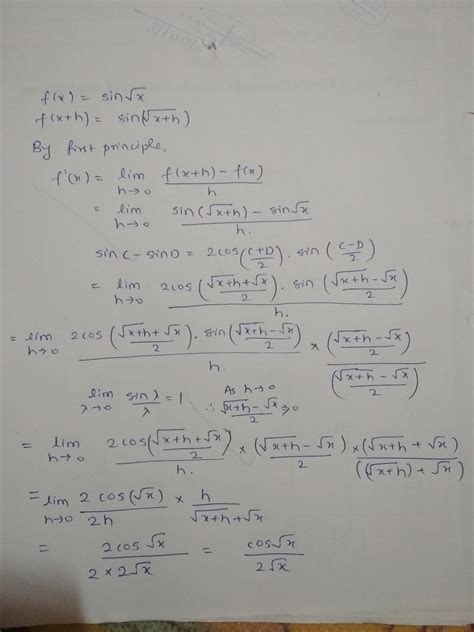 f(x) = sin√x
f(x+h) = sin(√x+h)
By first principle,
f'(x) = lim h→0 f(x+h) - f(x) / h
= lim h→0 sin(√x+h) - sin√x / h.
sin C - sin D = 2cos(C+D/2) . sin (C-D/2)
= lim h→0 2cos (√x+h+√x / 2) . sin (√x+h-√x / 2) / h.
= lim h→0 2cos (√x+h + √x / 2) . sin(√x+h-√x / 2) / h. × (√x+h - √x / 2) / (√x+h - √x / 2)
lim λ→0 sin λ / λ = 1 As h→0
∴ √x+h - √x / 2 → 0
= lim h→0 2cos(√x+h+√x / 2) / h. × (√x+h - √x) / 2 × (√x+h + √x) / ((√x+h) + √x)
= lim h→0 2 cos(√x) / 2h × h / √x+h+√x
= 2cos√x / 2×2√x = cos√x / 2√x